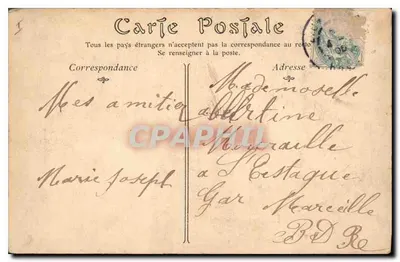 Carte Postale
Tous les pays étrangers n'acceptent pas la correspondance au
Se renseigner à la poste.
Correspondance
Adresse
Mes amitié
Marie Joseph
Mademoselle
albertine
Mouraille
a L'Estaque
Gar Marceille
B D R
CPAPHIL